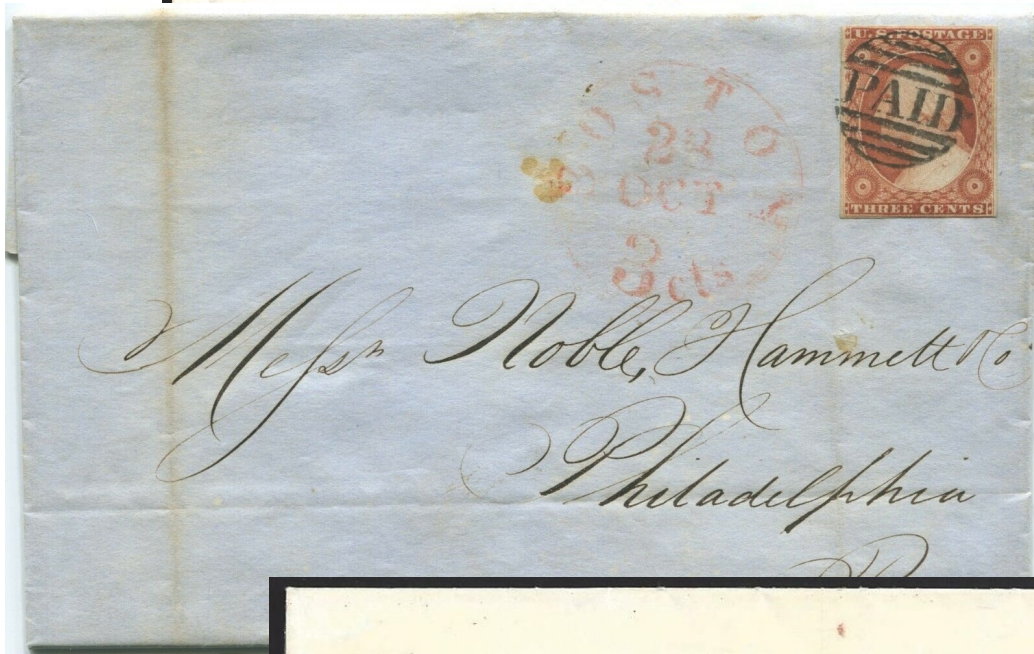 U.S. POSTAGE
PAID
THREE CENTS
BOSTON
OCT
3 cts
Messrs Noble, Hammett & Co
Philadelphia